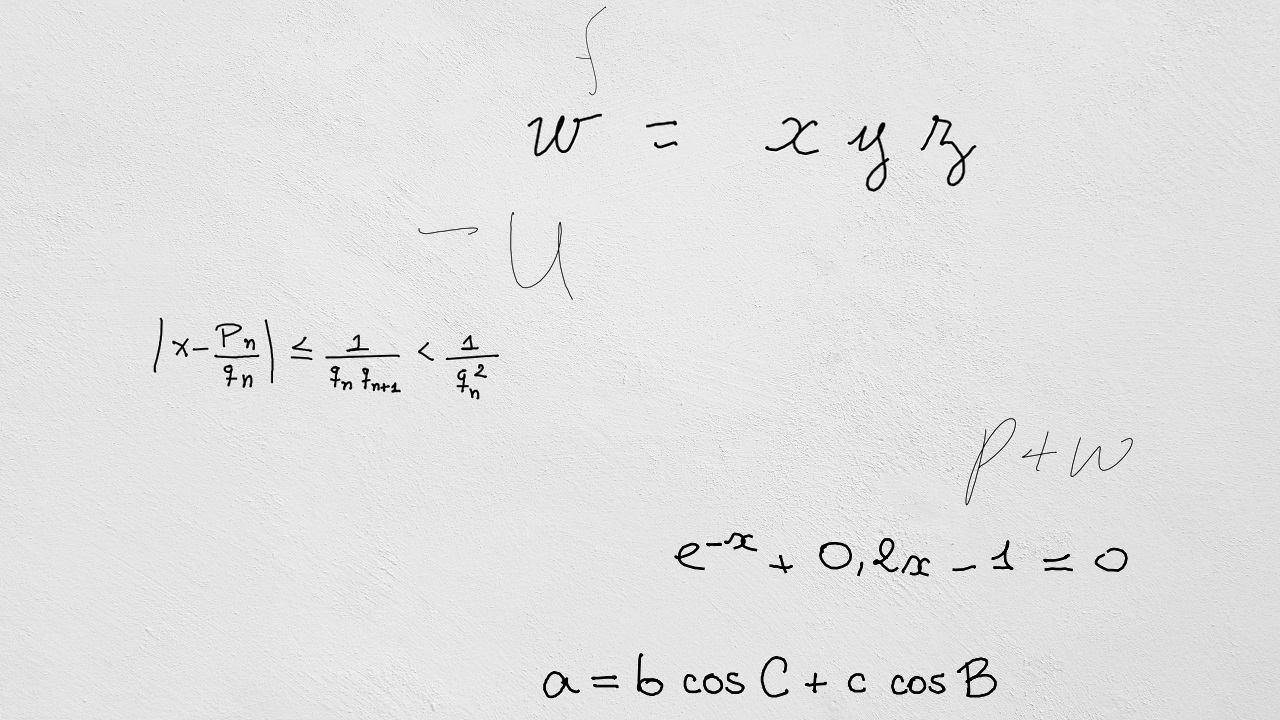 f
w = x y z
- U
|x - P_n/q_n| ≤ 1/(q_n q_{n+1}) < 1/q_n^2
p + w
e^{-x} + 0,2x - 1 = 0
a = b cos C + c cos B